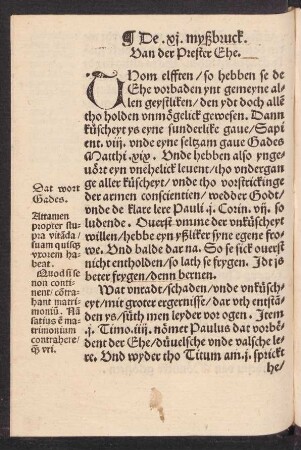 ¶ De .xj. myßbruck.
Van der Prester Ehe.
THom elfften / so hebben se de
Ehe vorbaden ynt gemeyne al-
len geystliken / den ydt doch allē
tho holden vnmögelick gewesen. Dann
kůscheyt ys eyne sunderlike gaue / Sapi
ent. viij. vnde eyn seltzam gaue Gades
Matthi .xix. Vnde hebben also ynge-
uört eyn vnehelick leuent / tho vndergan
ge aller kůscheyt / vnde tho vorstrickinge
der armen conscientien / wedder Godt /
vnde de klare lere Pauli .j. Corin. vij. so
ludende. Ouerst vmme der vnkůscheyt
willen / hebbe eyn yßliker syne egene fro
we. Vnd balde dar na. So se sick ouerst
nicht entholden / so lath se frygen. Jdt is
beter frygen / denn bernen.
Wat vnradt / schaden / vnde vnkůsch-
eyt / mit groter ergernisse / dar vth entstā-
den ys / süth men leyder vor ogen. Jtem
.j. Timo. iiij. nömet Paulus dat vorbē-
dent der Ehe / düuelsche vnde valsche le-
re. Vnd wyder tho Titum am .j. sprickt
he /
Dat wort
Gades.
Attamen
propter stu
pra vitāda /
suam quisq3
vxorem ha
beat.
Quod si se
non conti-
nent / cōtra-
hant matri-
moniū. Nā
satius ē ma-
trimonium
contrahere /
q̄3 vri.